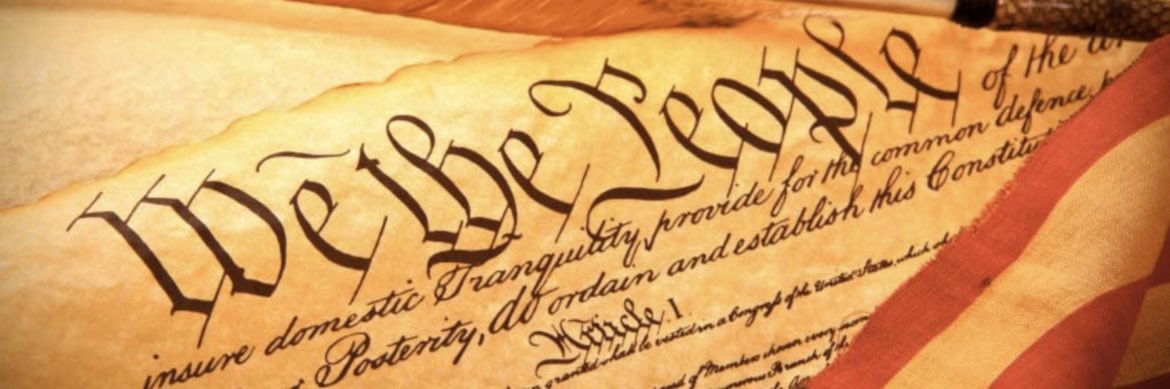 We the People of the Un
insure domestic Tranquility, provide for the common defence,
Posterity, do ordain and establish this Constitu
Article I
granted shall be vested in a Congress of the United States, which
of Members chosen every
Branch of the